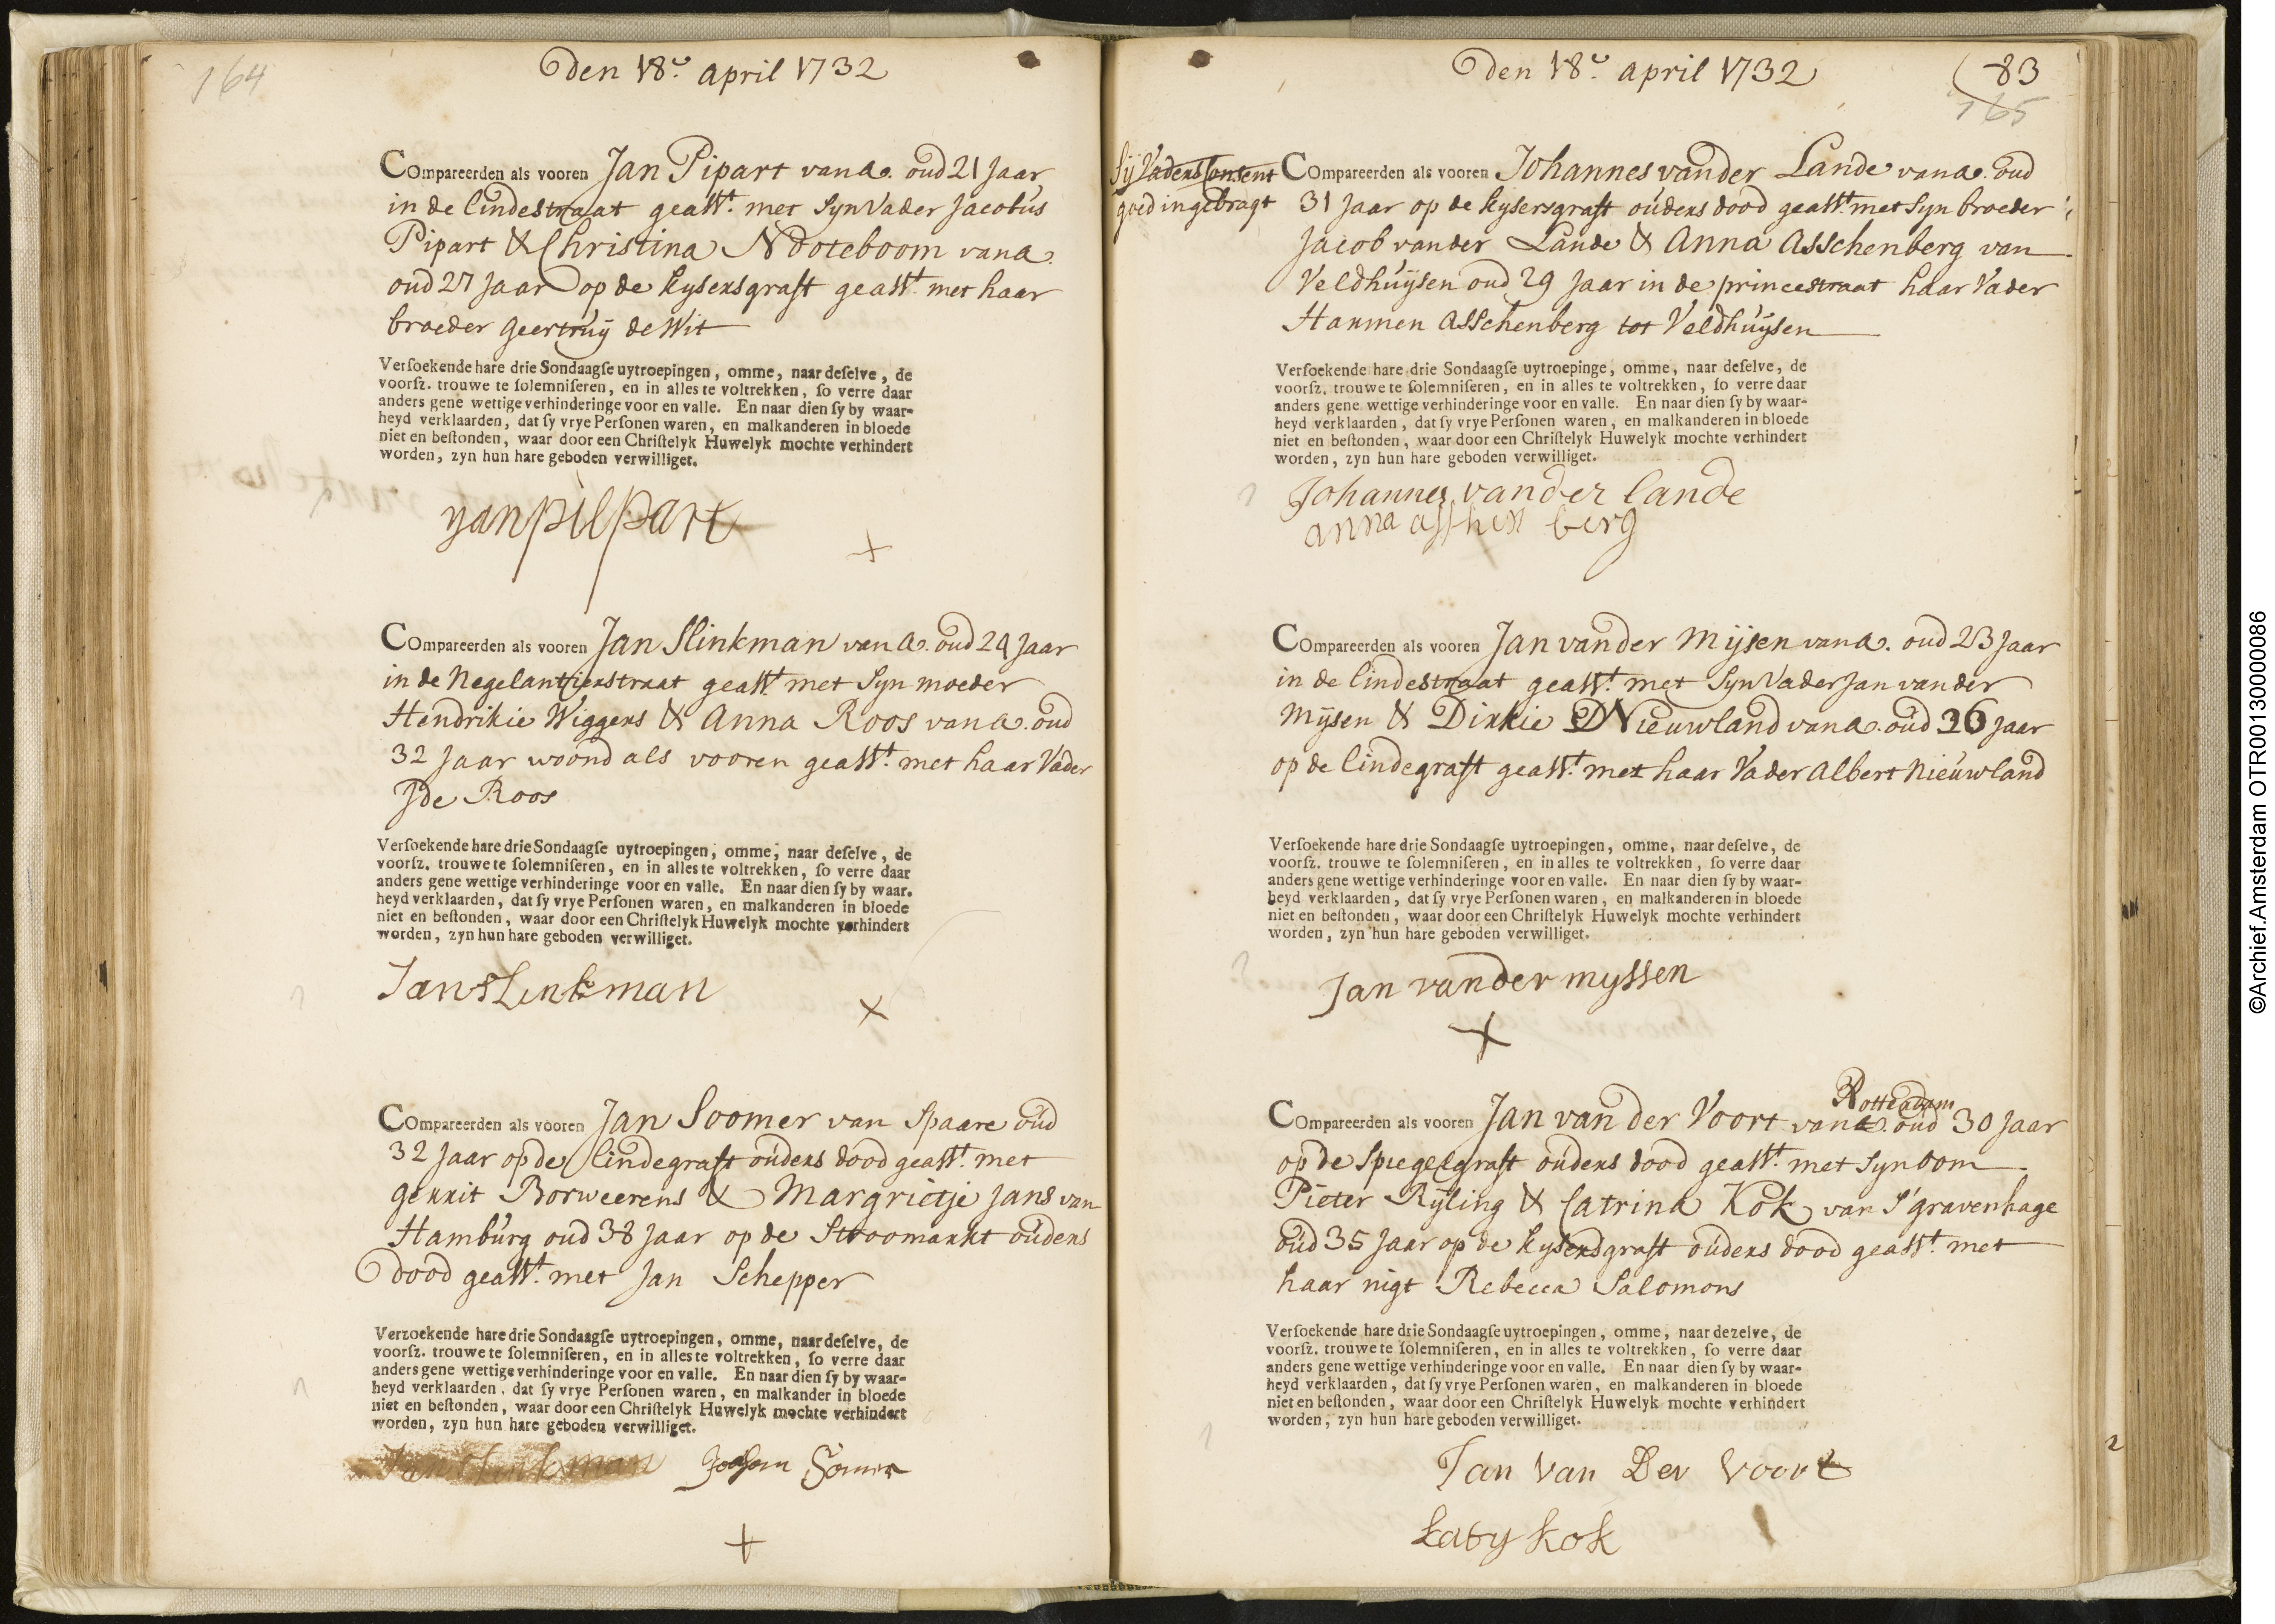 164
Den 18e. april 1732
Compareerden als vooren Jan Pipart van a. oud 21 Jaar
in de lindestraat geasst. met Syn Vader Jacobus
Pipart & Christina Nooteboom van a.
oud 27 Jaar op de Kysersgraft geasst. met haar
broeder Geertruy de Wit
Versoekende hare drie Sondaagse uytroepingen, omme, naar deselve, de
voorsz. trouwe te solemniseren, en in alles te voltrekken, so verre daar
anders gene wettige verhinderinge voor en valle. En naar dien sy by waar-
heyd verklaarden, dat sy vrye Personen waren, en malkanderen in bloede
niet en bestonden, waar door een Christelyk Huwelyk mochte verhindert
worden, zyn hun hare geboden verwilliget.
yan pilpart
x
Compareerden als vooren Jan Slinkman van a. oud 24 Jaar
in de Negelantierstraat geasst. met Syn moeder
Hendrikie Wiggers & Anna Roos van a. oud
32 Jaar woond als vooren geasst. met haar Vader
Ide Roos
Versoekende hare drie Sondaagse uytroepingen, omme, naar deselve, de
voorsz. trouwe te solemniseren, en in alles te voltrekken, so verre daar
anders gene wettige verhinderinge voor en valle. En naar dien sy by waar-
heyd verklaarden, dat sy vrye Personen waren, en malkanderen in bloede
niet en bestonden, waar door een Christelyk Huwelyk mochte verhindert
worden, zyn hun hare geboden verwilliget.
Jan sLinkman
x
Compareerden als vooren Jan Soomer van Spaare oud
32 Jaar op de lindegraft ouders dood geasst. met
Gerrit Borweerens & Margrietje Jans van
Hamburg oud 38 Jaar op de Stroomarkt ouders
dood geasst. met Jan Schepper
Verzoekende hare drie Sondaagse uytroepingen, omme, naar deselve, de
voorsz. trouwe te solemniseren, en in alles te voltrekken, so verre daar
anders gene wettige verhinderinge voor en valle. En naar dien sy by waar-
heyd verklaarden, dat sy vrye Personen waren, en malkander in bloede
niet en bestonden, waar door een Christelyk Huwelyk mochte verhindert
worden, zyn hun hare geboden verwilliget.
Jan slinkman
x
Den 18e. april 1732
83
165
Sij Vaders Consent
goed ingebragt
Compareerden als vooren Johannes vander Lande van a. oud
31 Jaar op de Kysersgraft ouders dood geasst. met Syn broeder
Jacob vander Lande & Anna Asschenberg van
Veldhuysen oud 29 Jaar in de princestraat haar Vader
Harmen Asschenberg tot Veldhuysen
Versoekende hare drie Sondaagse uytroepinge, omme, naar deselve, de
voorsz. trouwe te solemniseren, en in alles te voltrekken, so verre daar
anders gene wettige verhinderinge voor en valle. En naar dien sy by waar-
heyd verklaarden, dat sy vrye Personen waren, en malkanderen in bloede
niet en bestonden, waar door een Christelyk Huwelyk mochte verhindert
worden, zyn hun hare geboden verwilliget.
Johannes vander lande
anna asshen berg
Compareerden als vooren Jan vander Mijsen van a. oud 23 Jaar
in de lindestraat geasst. met Syn Vader Jan vander
Mijsen & Dirkie Nieuwland van a. oud 36 Jaar
op de lindegraft geasst. met haar Vader Albert Nieuwland
Versoekende hare drie Sondaagse uytroepingen, omme, naar deselve, de
voorsz. trouwe te solemniseren, en in alles te voltrekken, so verre daar
anders gene wettige verhinderinge voor en valle. En naar dien sy by waar-
heyd verklaarden, dat sy vrye Personen waren, en malkanderen in bloede
niet en bestonden, waar door een Christelyk Huwelyk mochte verhindert
worden, zyn hun hare geboden verwilliget.
Jan vander myssen
x
Rotterdam
Compareerden als vooren Jan van der Voort van a. oud 30 Jaar
op de Spiegelgraft ouders dood geasst. met Syn oom
Pieter Ryling & Catrina Kok van S'gravenhage
oud 35 Jaar op de Kysersgraft ouders dood geasst. met
haar nigt Rebecca Salomons
Versoekende hare drie Sondaagse uytroepingen, omme, naar dezelve, de
voorsz. trouwe te solemniseren, en in alles te voltrekken, so verre daar
anders gene wettige verhinderinge voor en valle. En naar dien sy by waar-
heyd verklaarden, dat sy vrye Personen waren, en malkanderen in bloede
niet en bestonden, waar door een Christelyk Huwelyk mochte verhindert
worden, zyn hun hare geboden verwilliget.
Jan Van Der Voort
Katy kok
©Archief.Amsterdam OTR00130000086